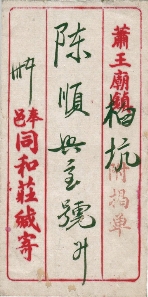 蕭王廟鎮
梅坑
附揭单
陈順兴宝號升
奉邑
同和莊緘寄